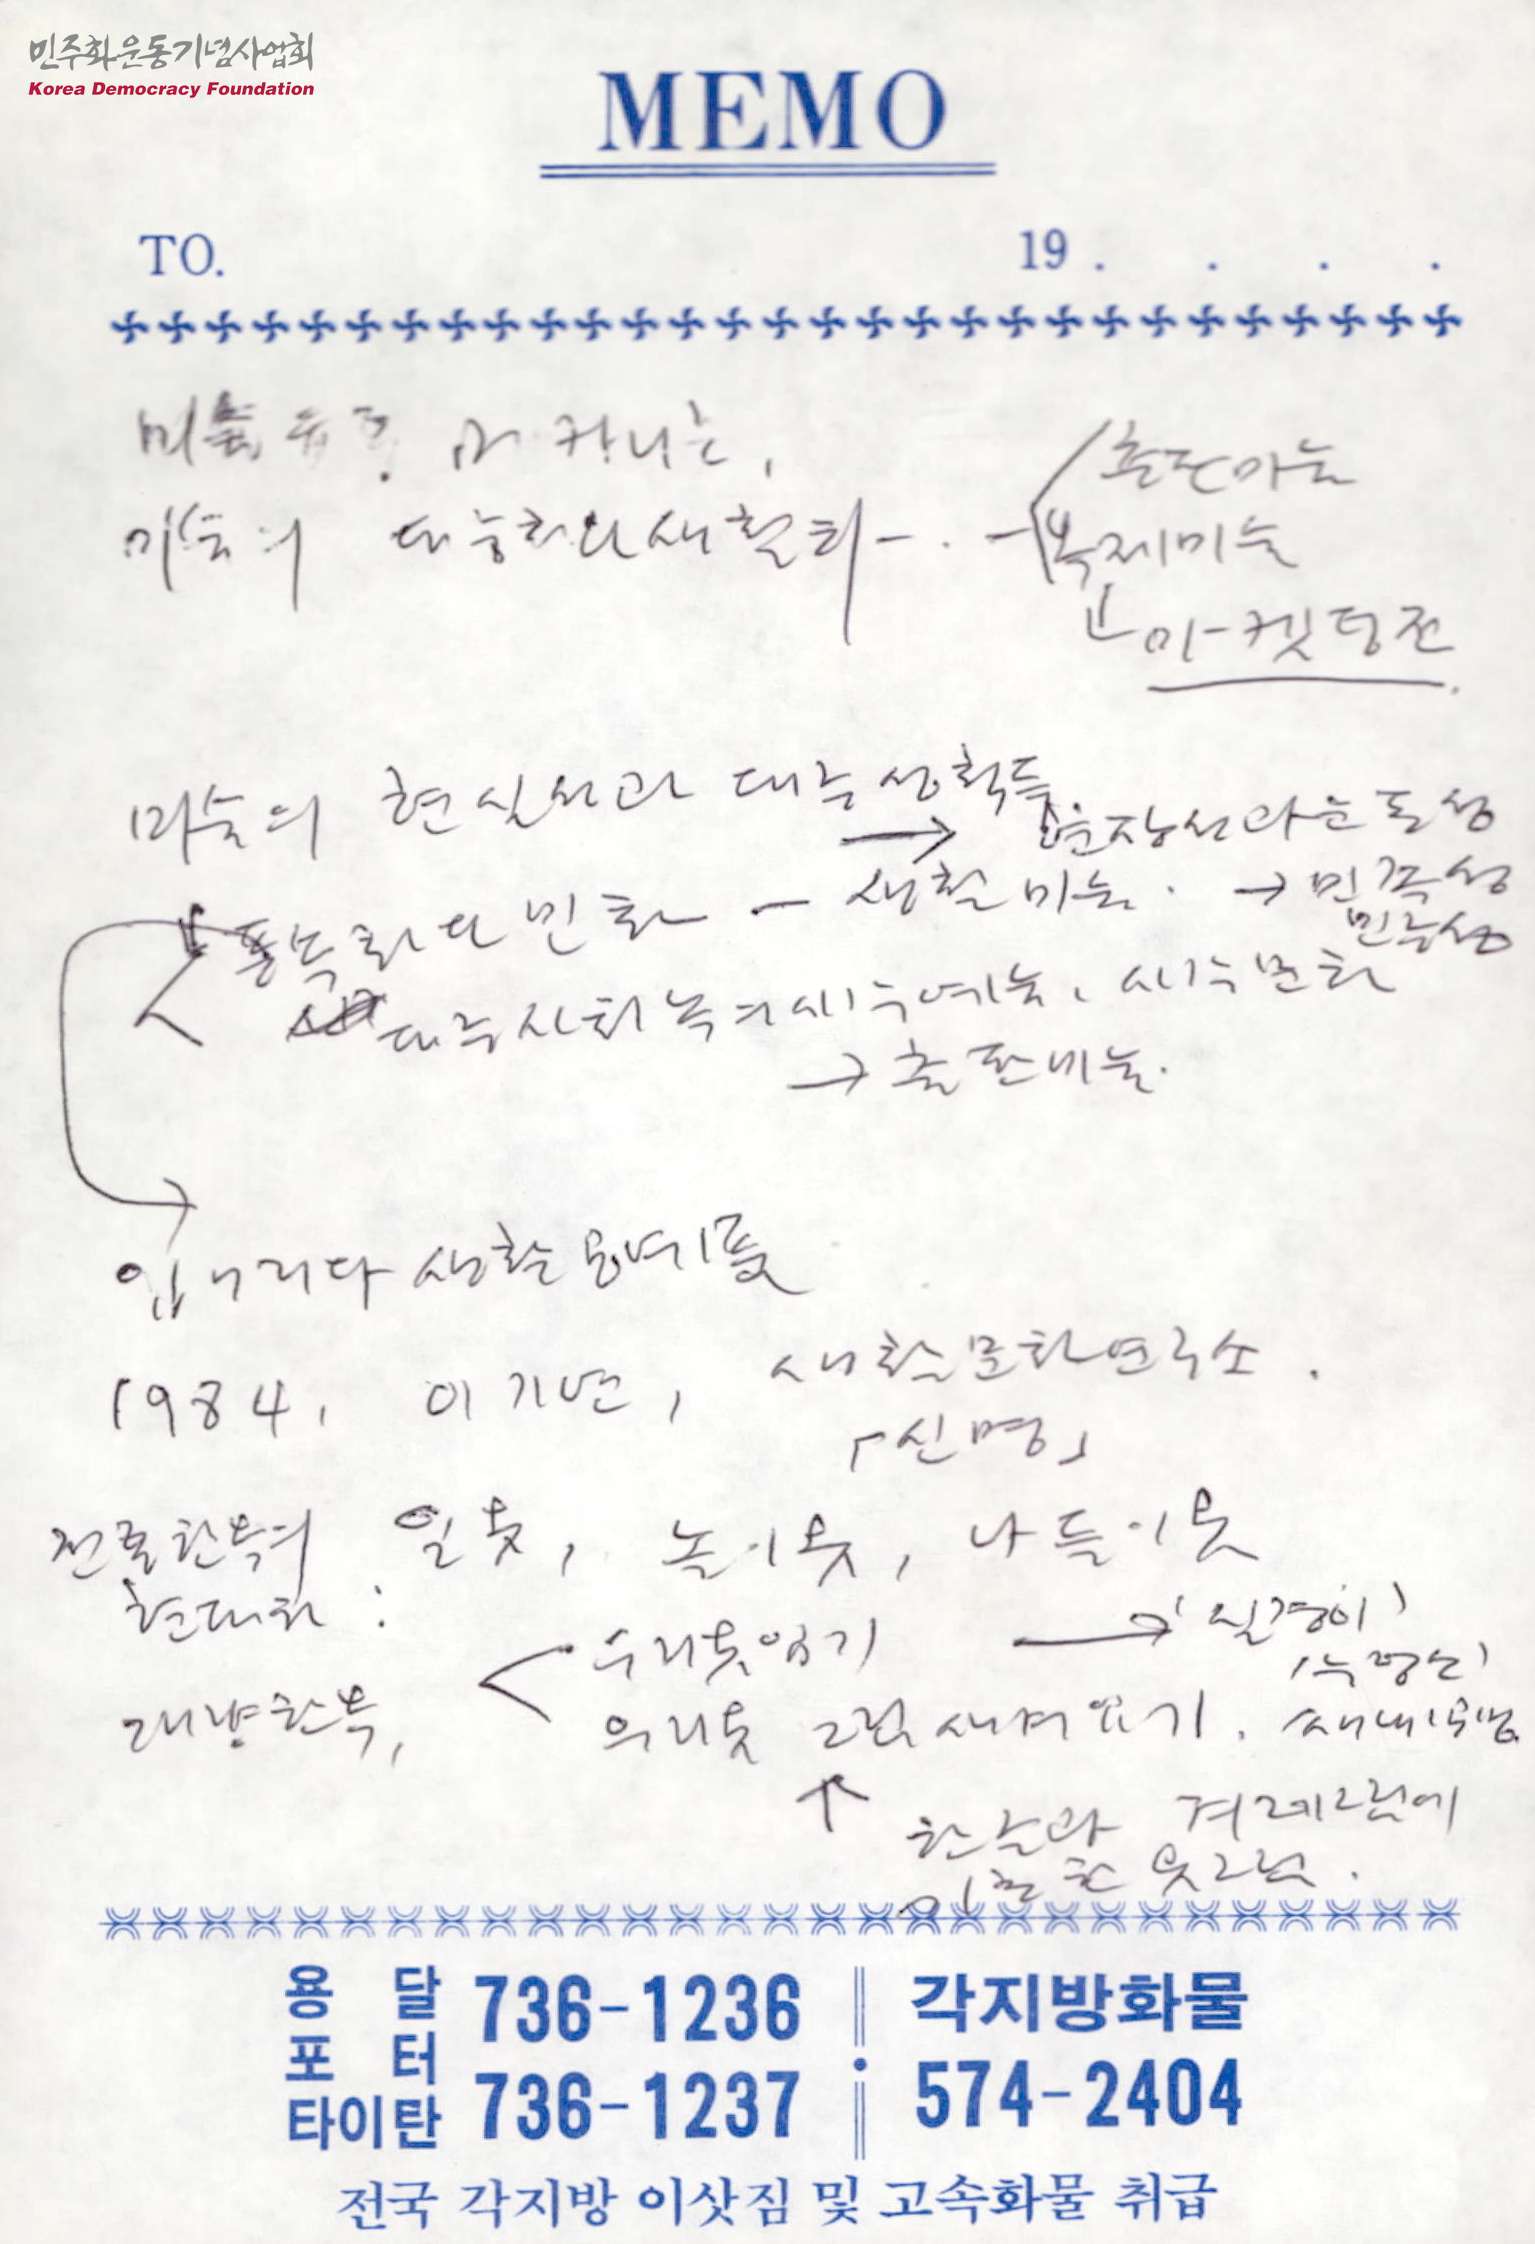 민주화운동기념사업회
Korea Democracy Foundation
MEMO
TO. 19 . . . .
출판미술
미술의 대중화와 생활화 - . - 복제미술
마-켓팅전
미술의 현실성과 대중성 획득
→ 현장성과 운동성
풍속화와 민화 - 생활미술. → 민족성
민중성
대중사회 속의 시각예술, 시각문화
→ 출판미술.
입니다 생활
1984, 이기연, 생활문화연구소.
「신명」
전통한복의 일옷, 놀이옷, 나들이옷
현대화 :
개량한복, 우리옷입기 → '질경이'
우리옷 그림새겨입기.
↑ 한글과 겨레그림에
옷그림.
용 달 736-1236 각지방화물
포 터
타이탄 736-1237 574-2404
전국 각지방 이삿짐 및 고속화물 취급